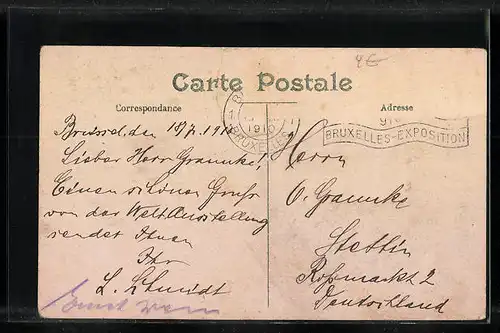 4€
Carte Postale
Correspondance
Adresse
1910
BRUXELLES
BRUXELLES-EXPOSITION
Brüssel, den 18/7. 1910
Lieber Herr Gramke!
Einen schönen Gruß
von der Weltausstellung
sendet Ihnen
Ihr
L. Schmidt
Herrn
O. Gramke
Stettin
Roßmarkt 2
Deutschland